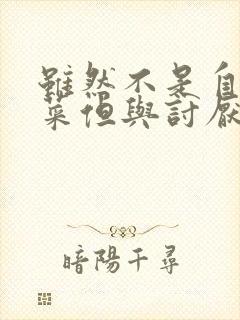 雖然不是自
菜但與討厭
暗陽千尋